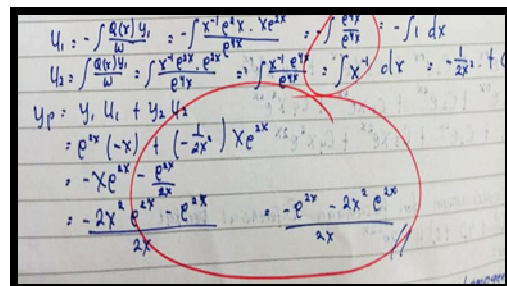 U₁ = -∫ Q(x) y₂/w = -∫ x⁻¹e²ˣ · xe²ˣ/e⁴ˣ = -∫ e⁴ˣ/e⁴ˣ = -∫1 dx
U₂ = ∫ Q(x) y₁/w = ∫ x⁻¹e²ˣ · e²ˣ/e⁴ˣ = ∫ x⁻¹ e⁴ˣ/e⁴ˣ = ∫ x⁻¹ dx = -1/2x² +
yp = y₁ u₁ + y₂ u₂
= e²ˣ (-x) + (-1/2x²) xe²ˣ
= -xe²ˣ - e²ˣ/2x
= -2x² e²ˣ - e²ˣ/2x = -e²ˣ - 2x² e²ˣ/2x //